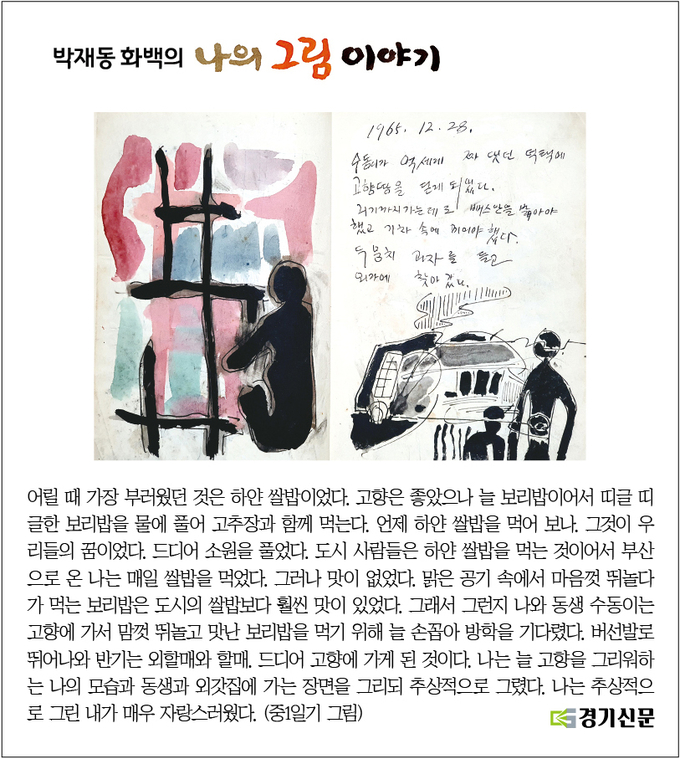 박재동 화백의 나의 그림 이야기
1965. 12. 28.
수동이가 억세게 짜 댔던 덕택에
고향땅을 밟게 되었다.
거기까지 가는데로 뻐스안을
했고 기차 속에 끼어야 했다.
두 뭉치 과자를 들고
외가에 찾아 갔다.
어릴 때 가장 부러웠던 것은 하얀 쌀밥이었다. 고향은 좋았으나 늘 보리밥이어서 띠글 띠
글한 보리밥을 물에 풀어 고추장과 함께 먹는다. 언제 하얀 쌀밥을 먹어 보나. 그것이 우
리들의 꿈이었다. 드디어 소원을 풀었다. 도시 사람들은 하얀 쌀밥을 먹는 것이어서 부산
으로 온 나는 매일 쌀밥을 먹었다. 그러나 맛이 없었다. 맑은 공기 속에서 마음껏 뛰놀다
가 먹는 보리밥은 도시의 쌀밥보다 훨씬 맛이 있었다. 그래서 그런지 나와 동생 수동이는
고향에 가서 맘껏 뛰놀고 맛난 보리밥을 먹기 위해 늘 손꼽아 방학을 기다렸다. 버선발로
뛰어나와 반기는 외할매와 할매. 드디어 고향에 가게 된 것이다. 나는 늘 고향을 그리워하
는 나의 모습과 동생과 외갓집에 가는 장면을 그리되 추상적으로 그렸다. 나는 추상적으
로 그린 내가 매우 자랑스러웠다. (중1일기 그림)
경기신문